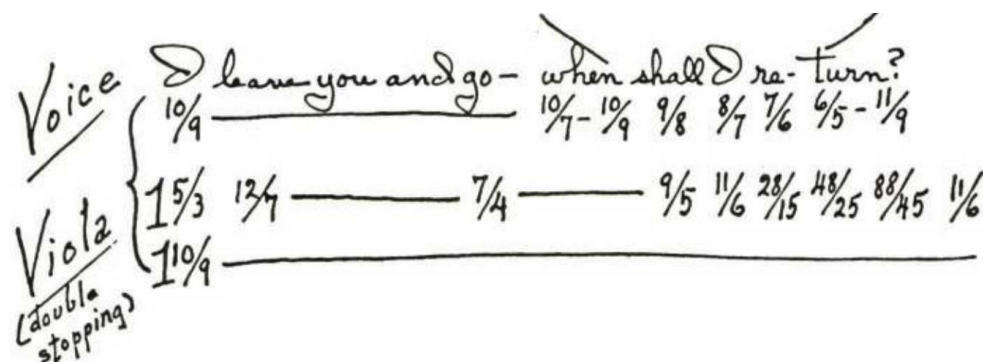 Voice
I leave you and go- when shall I re-turn?
10/9 10/7-10/9 9/8 8/7 7/6 6/5-11/9
Viola
(double stopping)
1 5/3 12/7 7/4 9/5 11/6 28/15 48/25 88/45 11/6
1 10/9